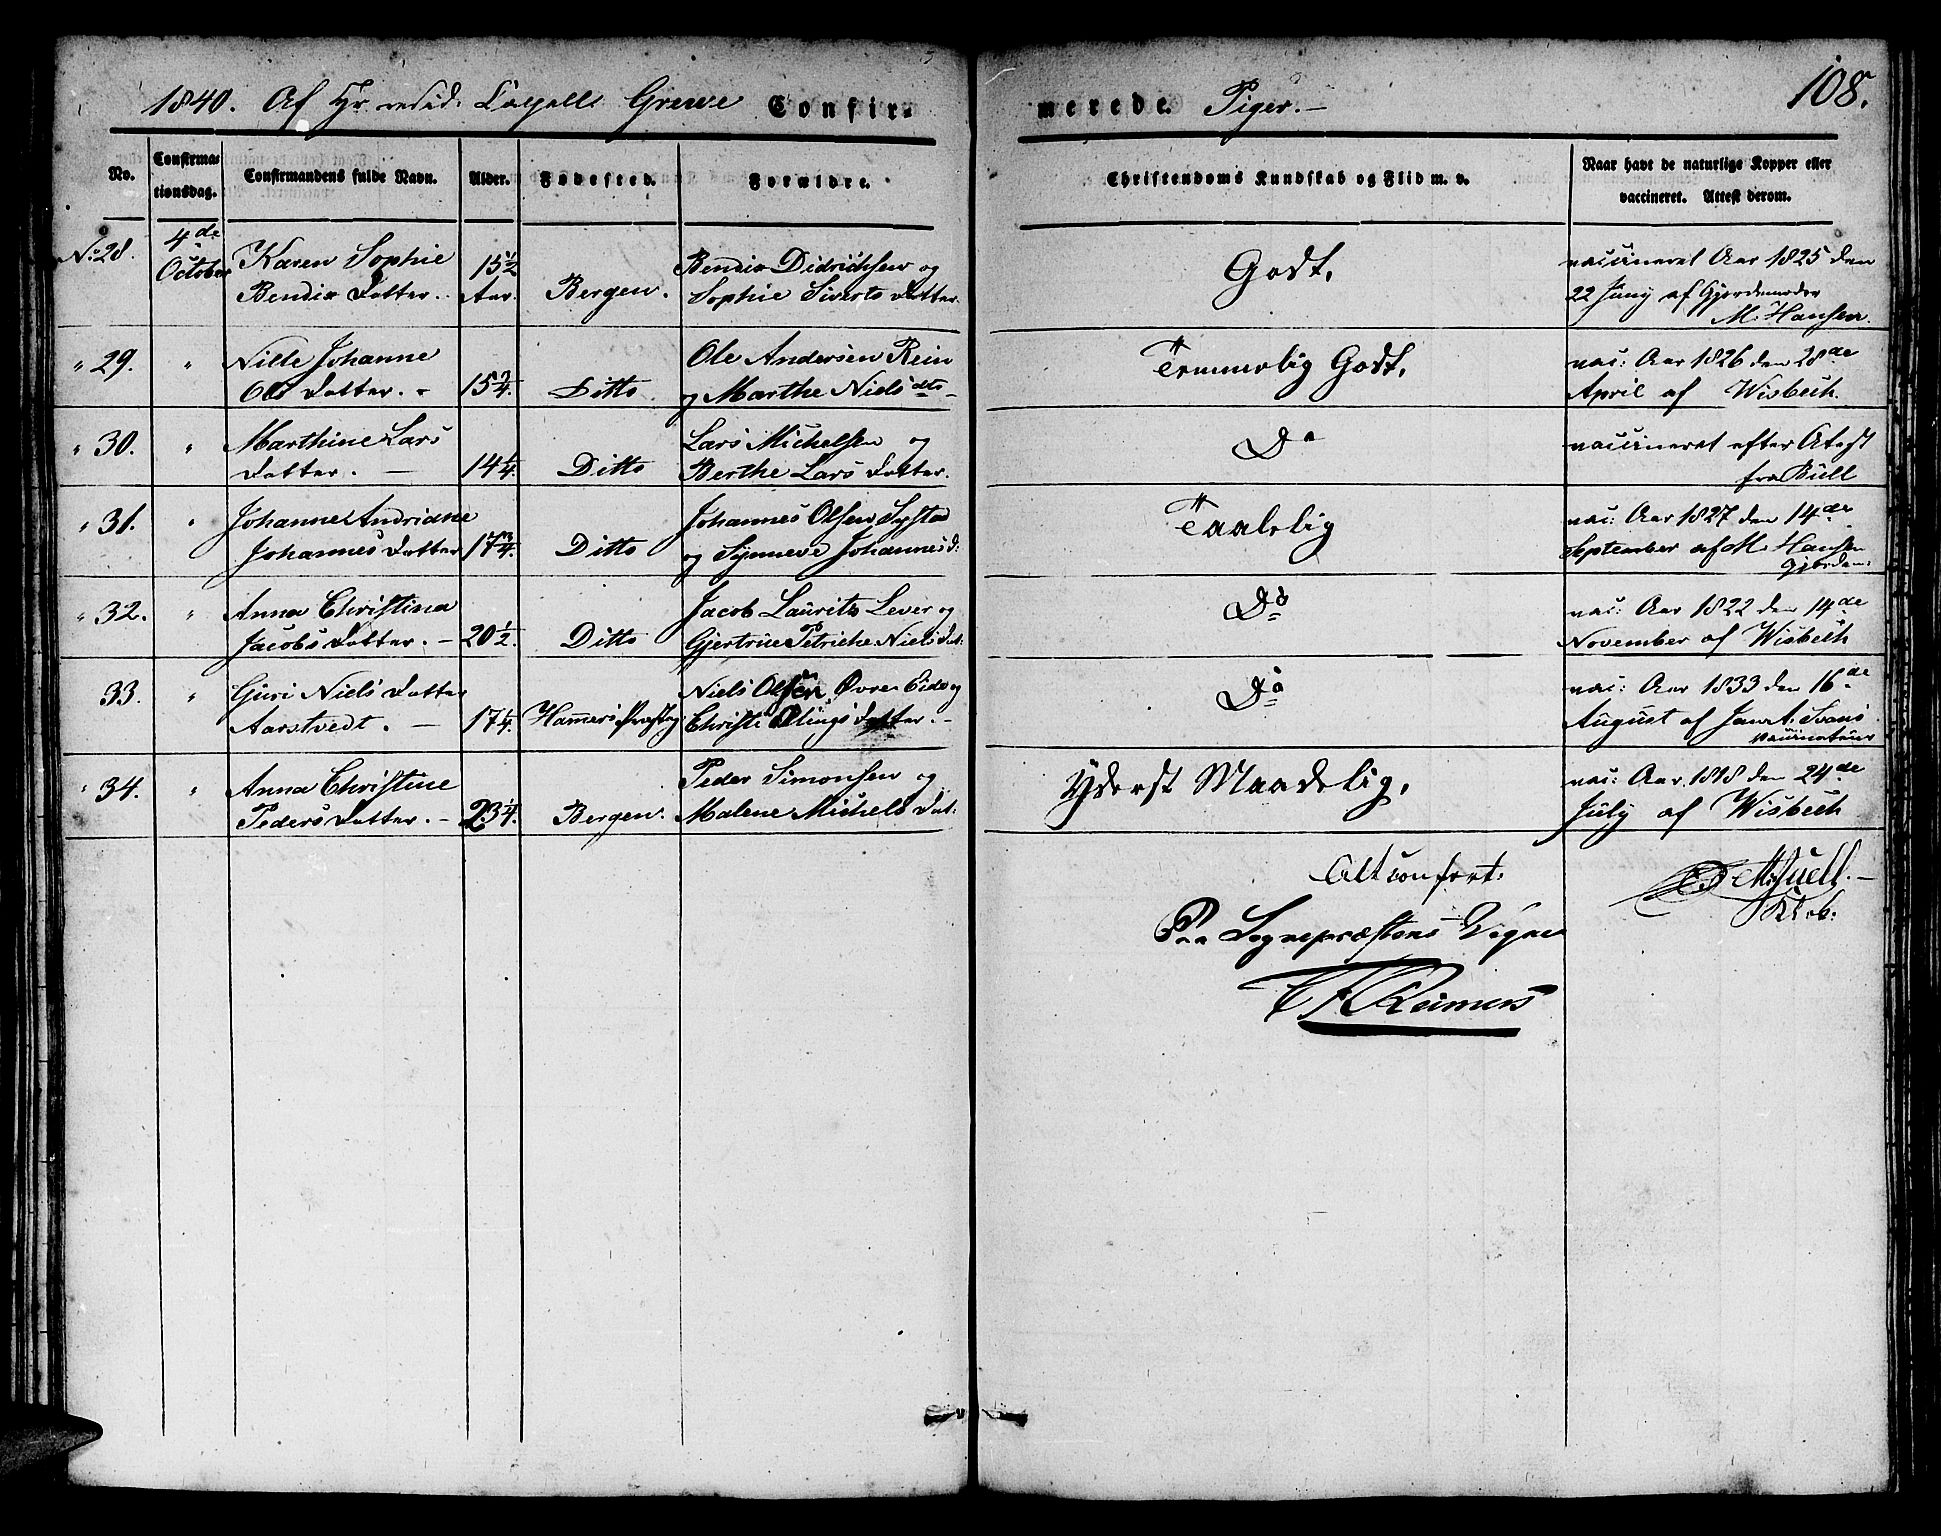 1840. Af Hr. resid. Capell: Greve Confir- merede Piger. — 108.
No. Confirma-tionsdag. Confirmandens fulde Navn. Alder. Fødested. Forældre. Christendoms Kundskab og Flid m. v. Naar havt de naturlige Kopper eller vaccineret. Attest derom.
No. 28. 4de October Karen Sophie Bendix Datter. 15 1/2 Aar. Bergen. Bendix Didrichsen og Sophie Siverts Datter. Godt. vaccineret Aar 1825 den 22 Juny af Gjordemoder M. Hansen.
" 29. " Nille Johanne Ols Datter. - 15 3/4. Ditto Ole Andersen Rein og Marthe Niels dtr - Temmelig Godt. vac: Aar 1826 den 28de April af Wisbech.
" 30. " Marthine Lars Datter. — 14 1/4. Ditto Lars Michelsen og Berthe Lars Datter. Do vaccineret efter Atest fra Büll
" 31. " Johanne Andriane Johannes Datter 17 3/4. Ditto Johannes Olsen Systad og Synneve Johannes d: Taalelig vac: Aar 1827 den 14de September af M. Hansen Gjordem:
" 32. " Anna Christina Jacobs Datter. - 20 1/2. Ditto Jacob Lauritz Lever og Gjertrue Petriche Niels Dat: Do vac: Aar 1822 den 14de November af Wisbech
33. " Guri Niels Datter Aarstvedt. — 17 1/4. Hammers Præstegj: Niels Olsen Øvre Eide og Christi Datter. - Do vac: Aar 1833 den 16de August af Svans vaccinateur
" 34. " Anna Christine Peders Datter. - 23 1/4. Bergen. Peder Simonsen og Malene Michels Dat: Yderst Maadelig. vac: Aar 1818 den 24de July af Wisbech
Alt confert.
Klok.
Paa Sognepræstens Vegne
Reimers